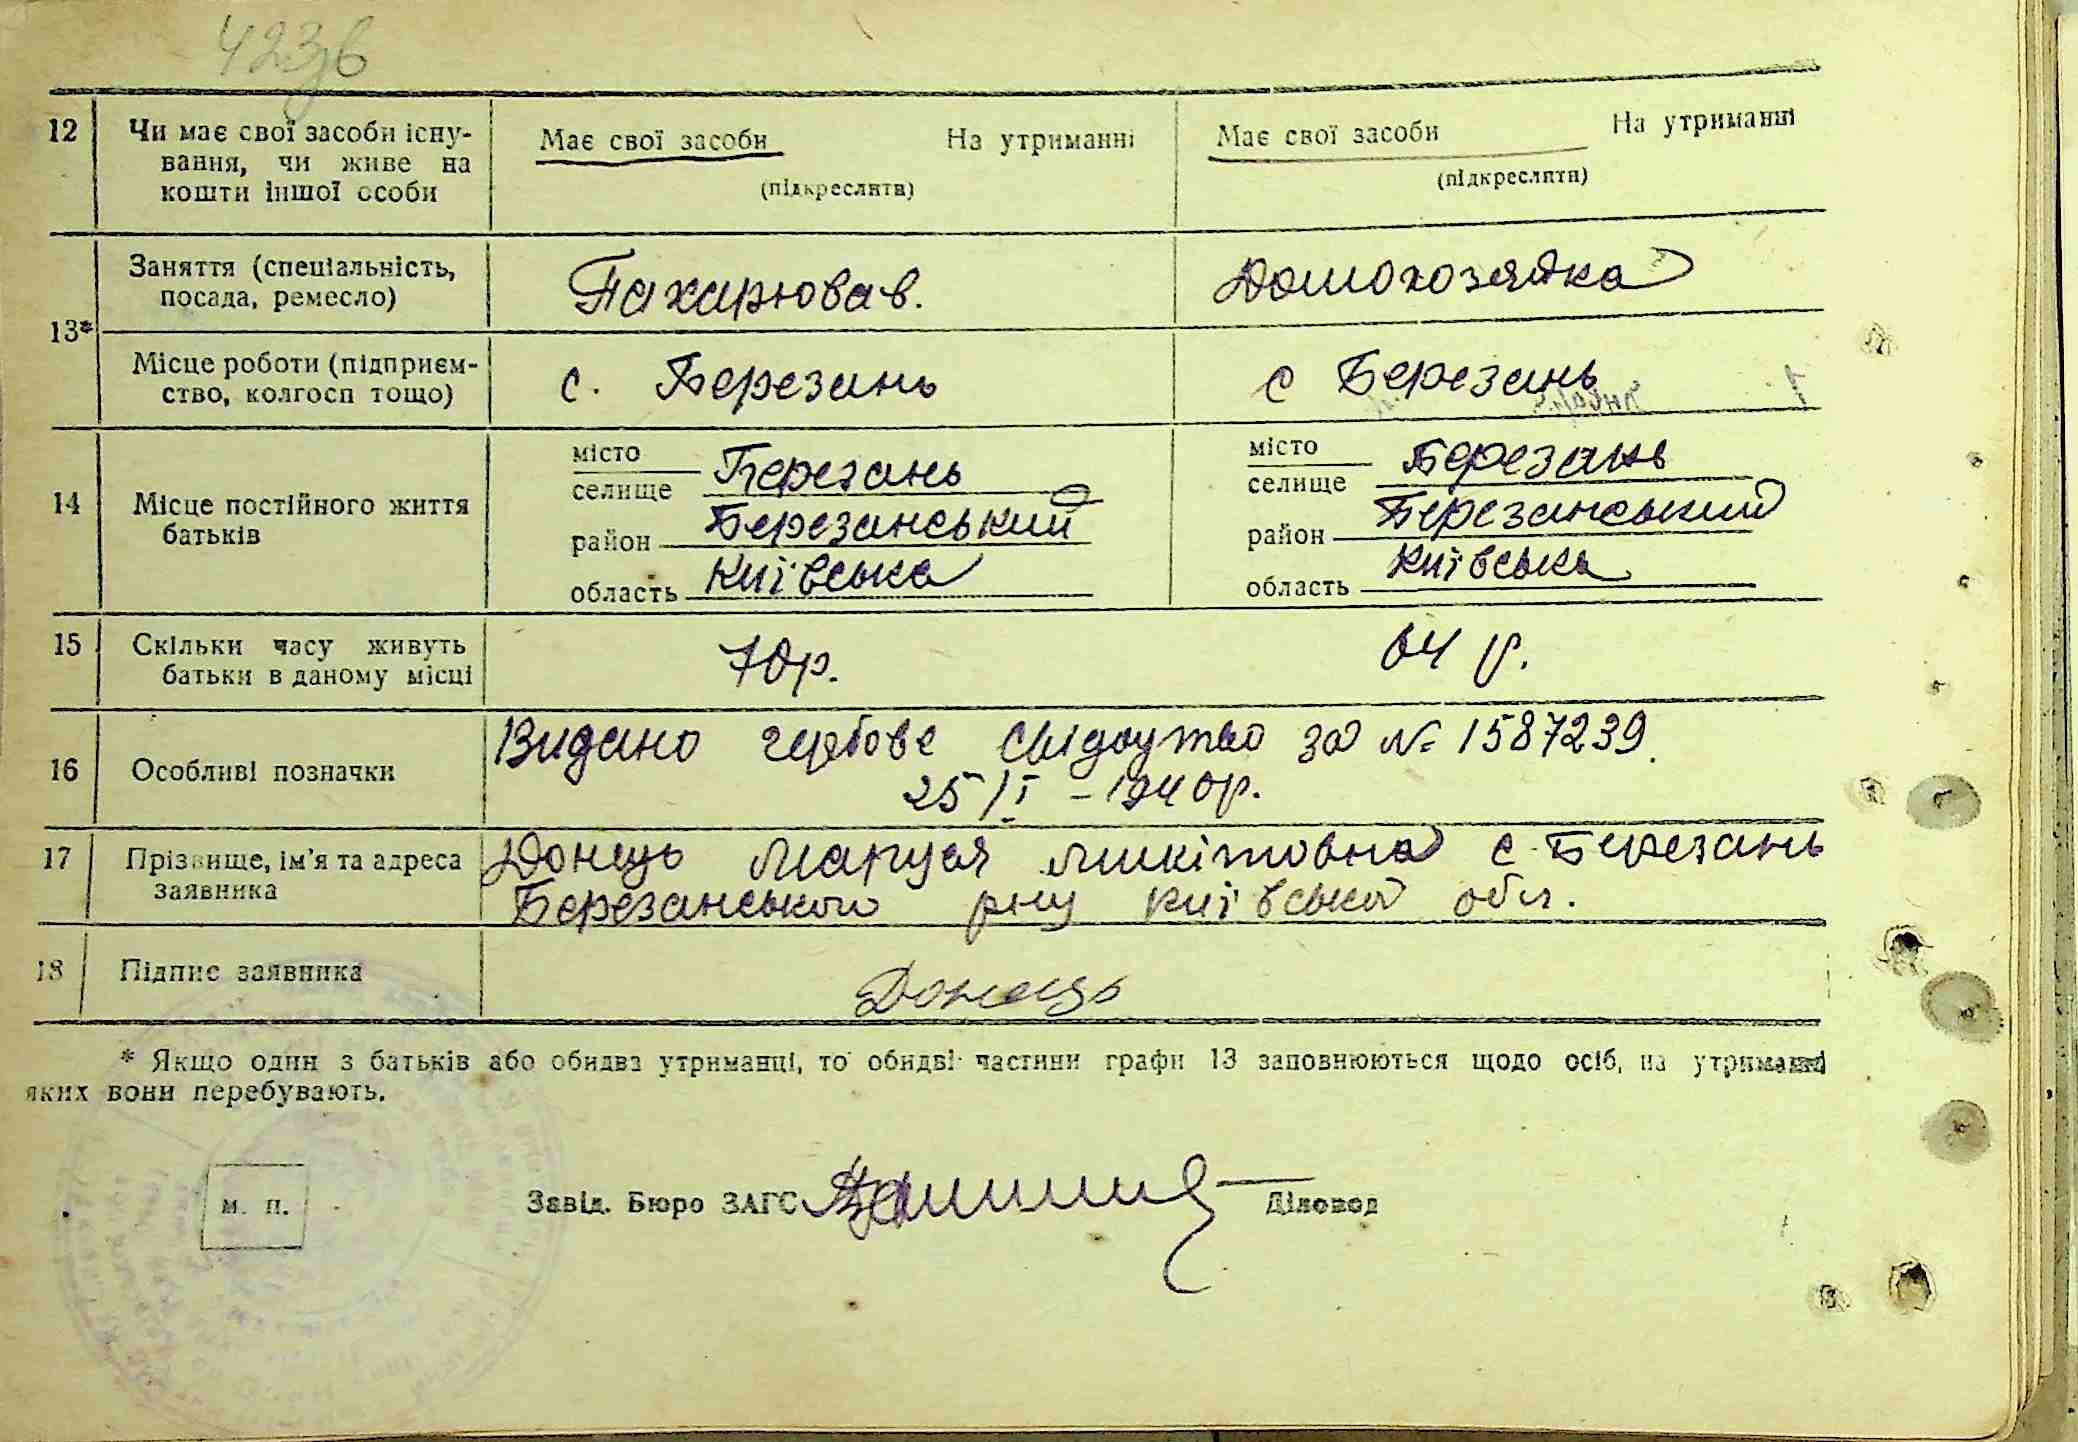 423зв
12 Чи має свої засоби існу- Має свої засоби На утриманні Має свої засоби На утриманні
вання, чи живе на
кошти іншої особи (підкреслити) (підкреслити)
13* Заняття (спеціальність, Пахарював. Домохозяйка
посада, ремесло)
Місце роботи (підприєм- с. Березань с Березань
ство, колгосп тощо)
14 Місце постійного життя батьків
місто
селище Березань
район Березанський
область Київська
місто
селище Березань
район Березанський
область Київська
15 Скільки часу живуть 70р. 64 р.
батьки в даному місці
16 Особливі позначки Видано гербове свідоцтво за № 1587239.
25/I – 1940р.
17 Прізвище, ім'я та адреса Донець Маруся Микітовна с. Березань
заявника Березанського рну Київської обл.
18 Підпис заявника Донець
* Якщо один з батьків або обидва утриманці, то обидві частини графи 13 заповнюються щодо осіб, на утриманні
яких вони перебувають.
м. п. Завід. Бюро ЗАГС Діловод